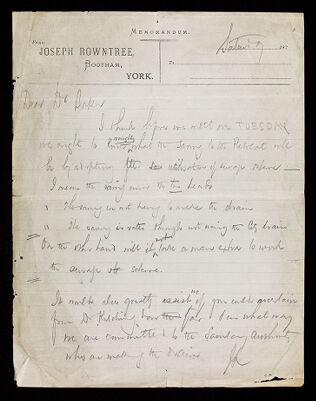 MEMORANDUM.
From
JOSEPH ROWNTREE,
BOOTHAM,
YORK.
To
187
Dear Dr Baker
I think before we meet on TUESDAY
we ought to know roughly what the saving to the Retreat will
be by adopting the utilisation of sewage scheme
I mean the saving under the two heads
" The saving in not having to make the drain
" The saving in rates through not using the City drain
On the other hand will it not take a man extra to work
the sewage scheme.
It would also greatly assist me if you could ascertain
from Dr Kitching how far & in what way
we are committed to the Sanitary Authority
who are making the
JR